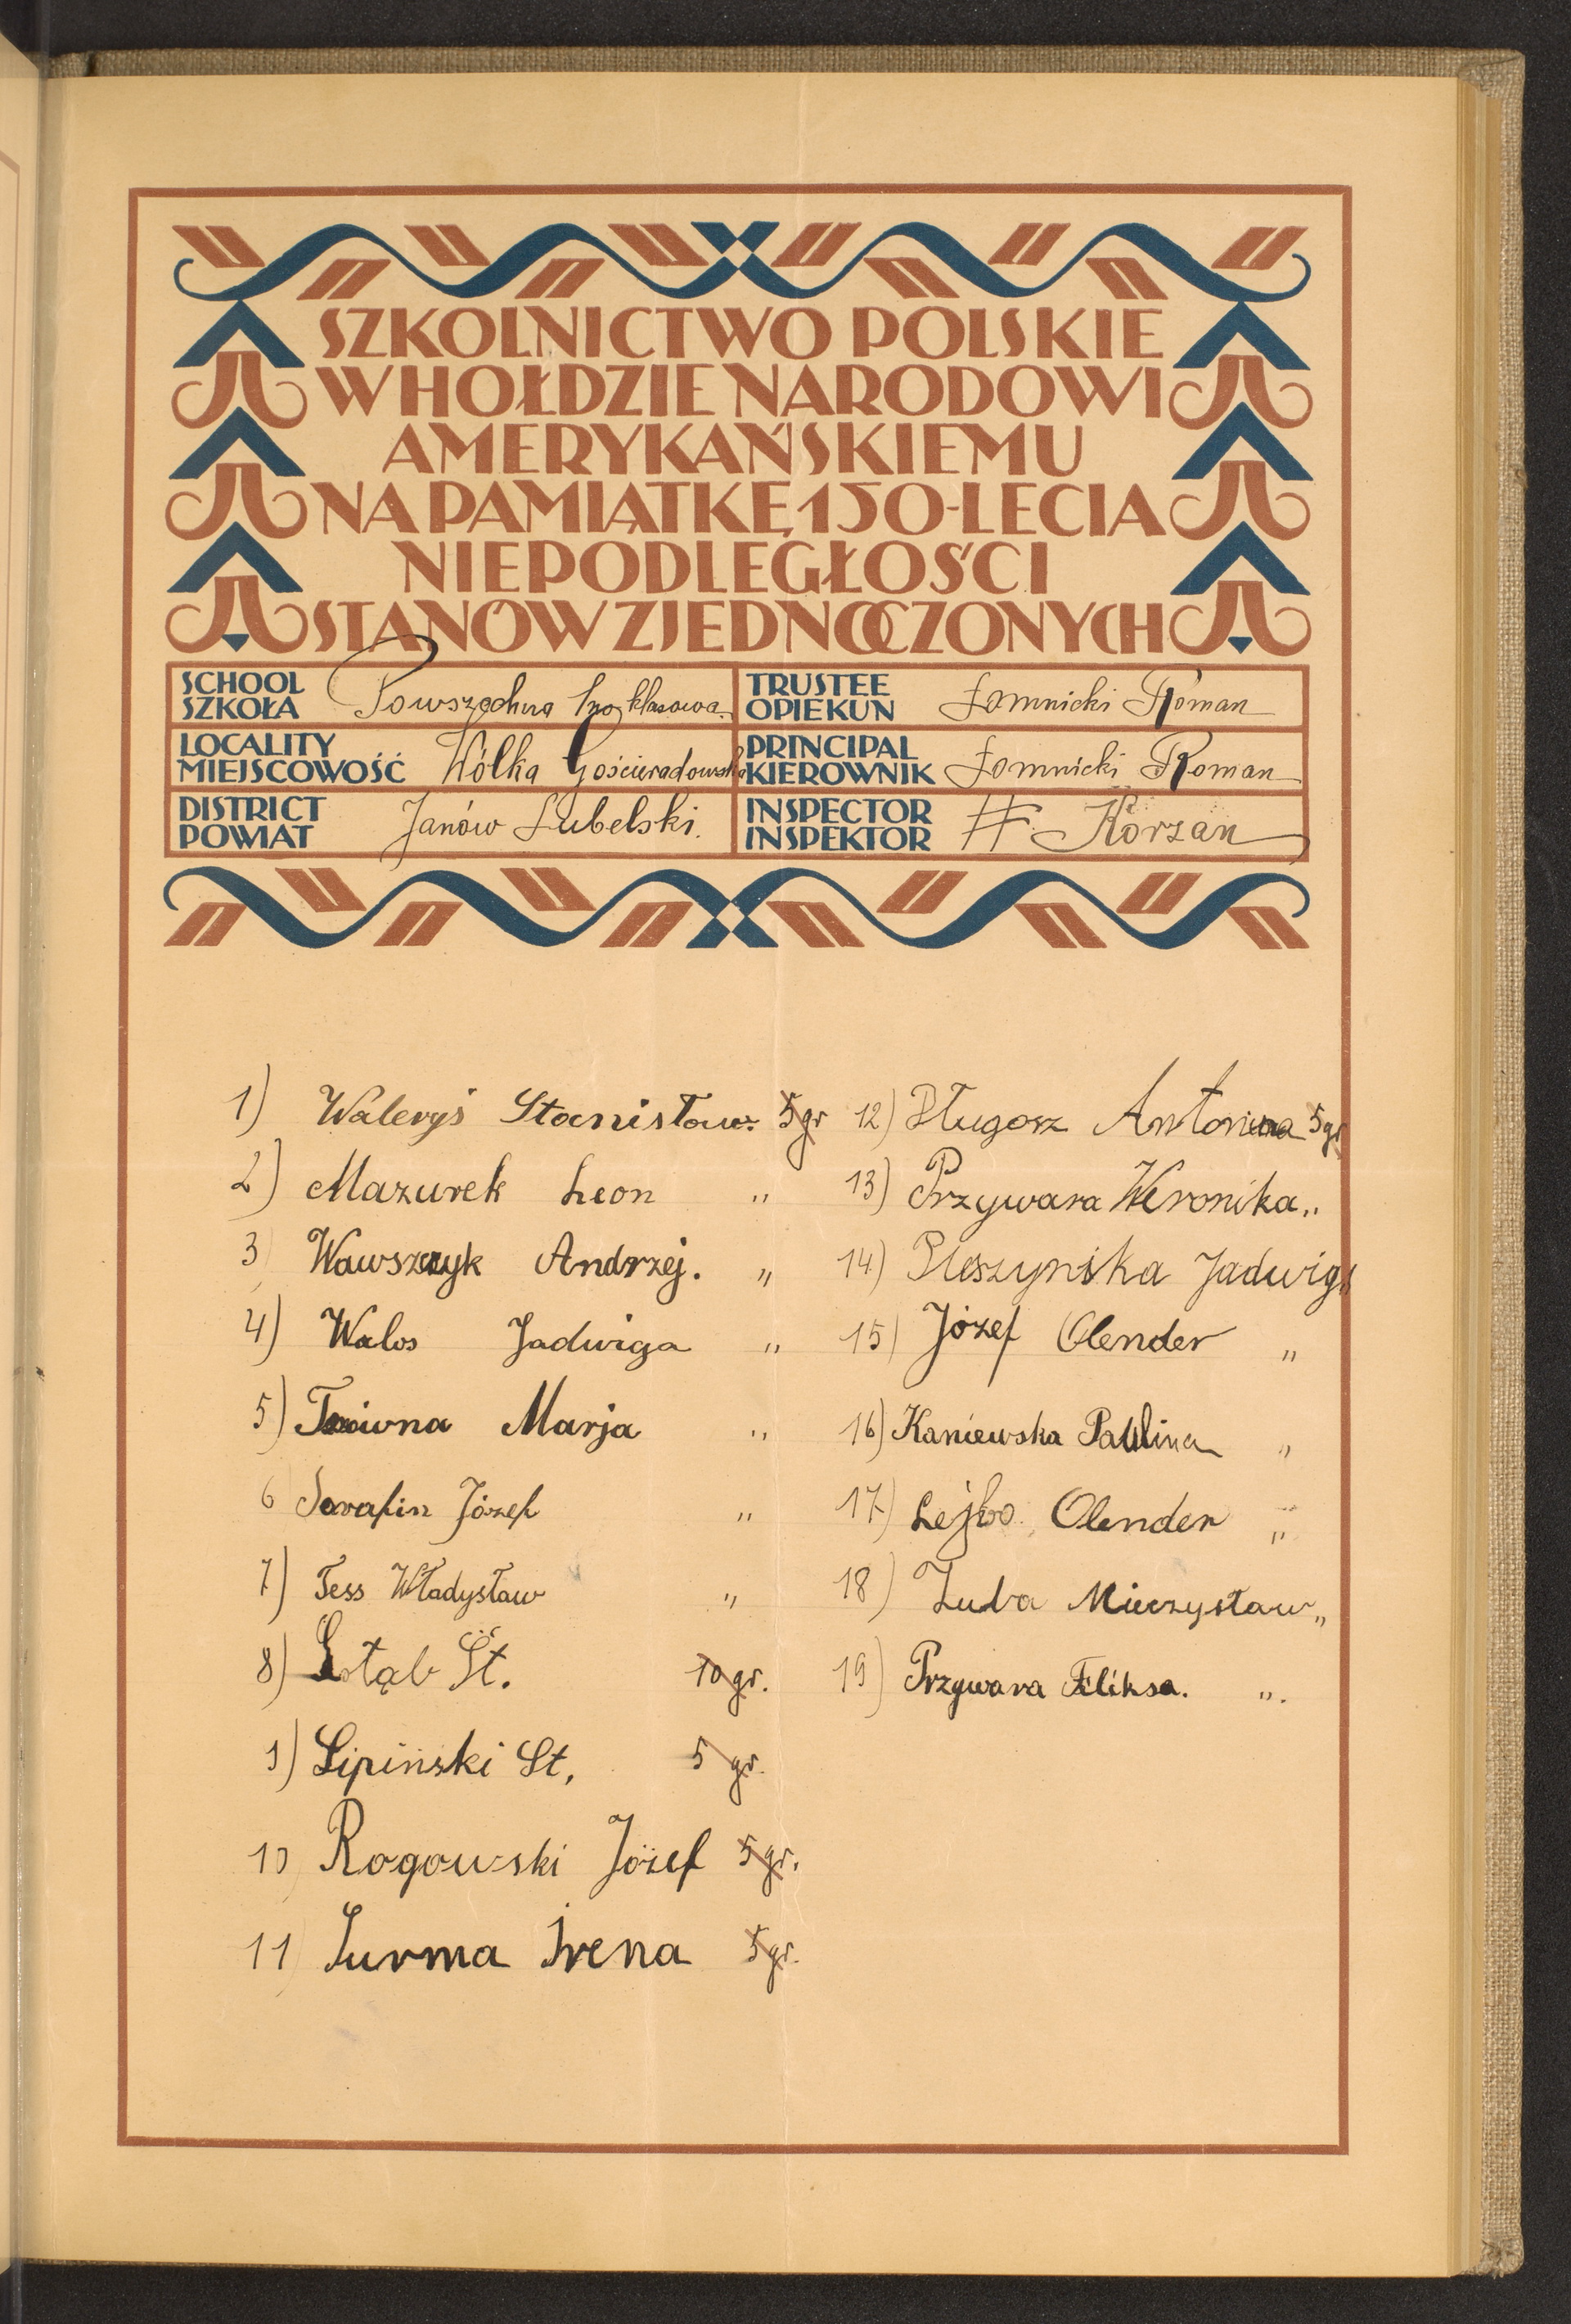 SZKOLNICTWO POLSKIE
W HOŁDZIE NARODOWI
AMERYKAŃSKIEMU
NA PAMIĄTKĘ 150-LECIA
NIEPODLEGŁOŚCI
STANÓW ZJEDNOCZONYCH
SCHOOL
SZKOŁA
Powszechna klasowa.
TRUSTEE
OPIEKUN
Łomnicki Roman
LOCALITY
MIEJSCOWOŚĆ
Wólka Gościeradowska
PRINCIPAL
KIEROWNIK
Łomnicki Roman
DISTRICT
POWIAT
Janów Lubelski.
INSPECTOR
INSPEKTOR
F. Korzan
1) Waleryś Stanisław. 5gr
2) Mazurek Leon "
3) Wawszczyk Andrzej. "
4) Walos Jadwiga "
5) Marja "
6 Serafin Józef "
7) Tess Władysław "
8) St. 10gr.
9) Lipiński St. 5 gr.
10 Rogowski Józef 5gr.
11) Surma Irena 5gr.
12) Długosz Antonina 5gr
13) Przywara Weronika "
14) Pleszyńska Jadwiga
15) Józef Olender "
16) Kaniewska Paulina "
17) Olender "
18) Zuba Mieczysław "
19) Przywara Feliksa. ".